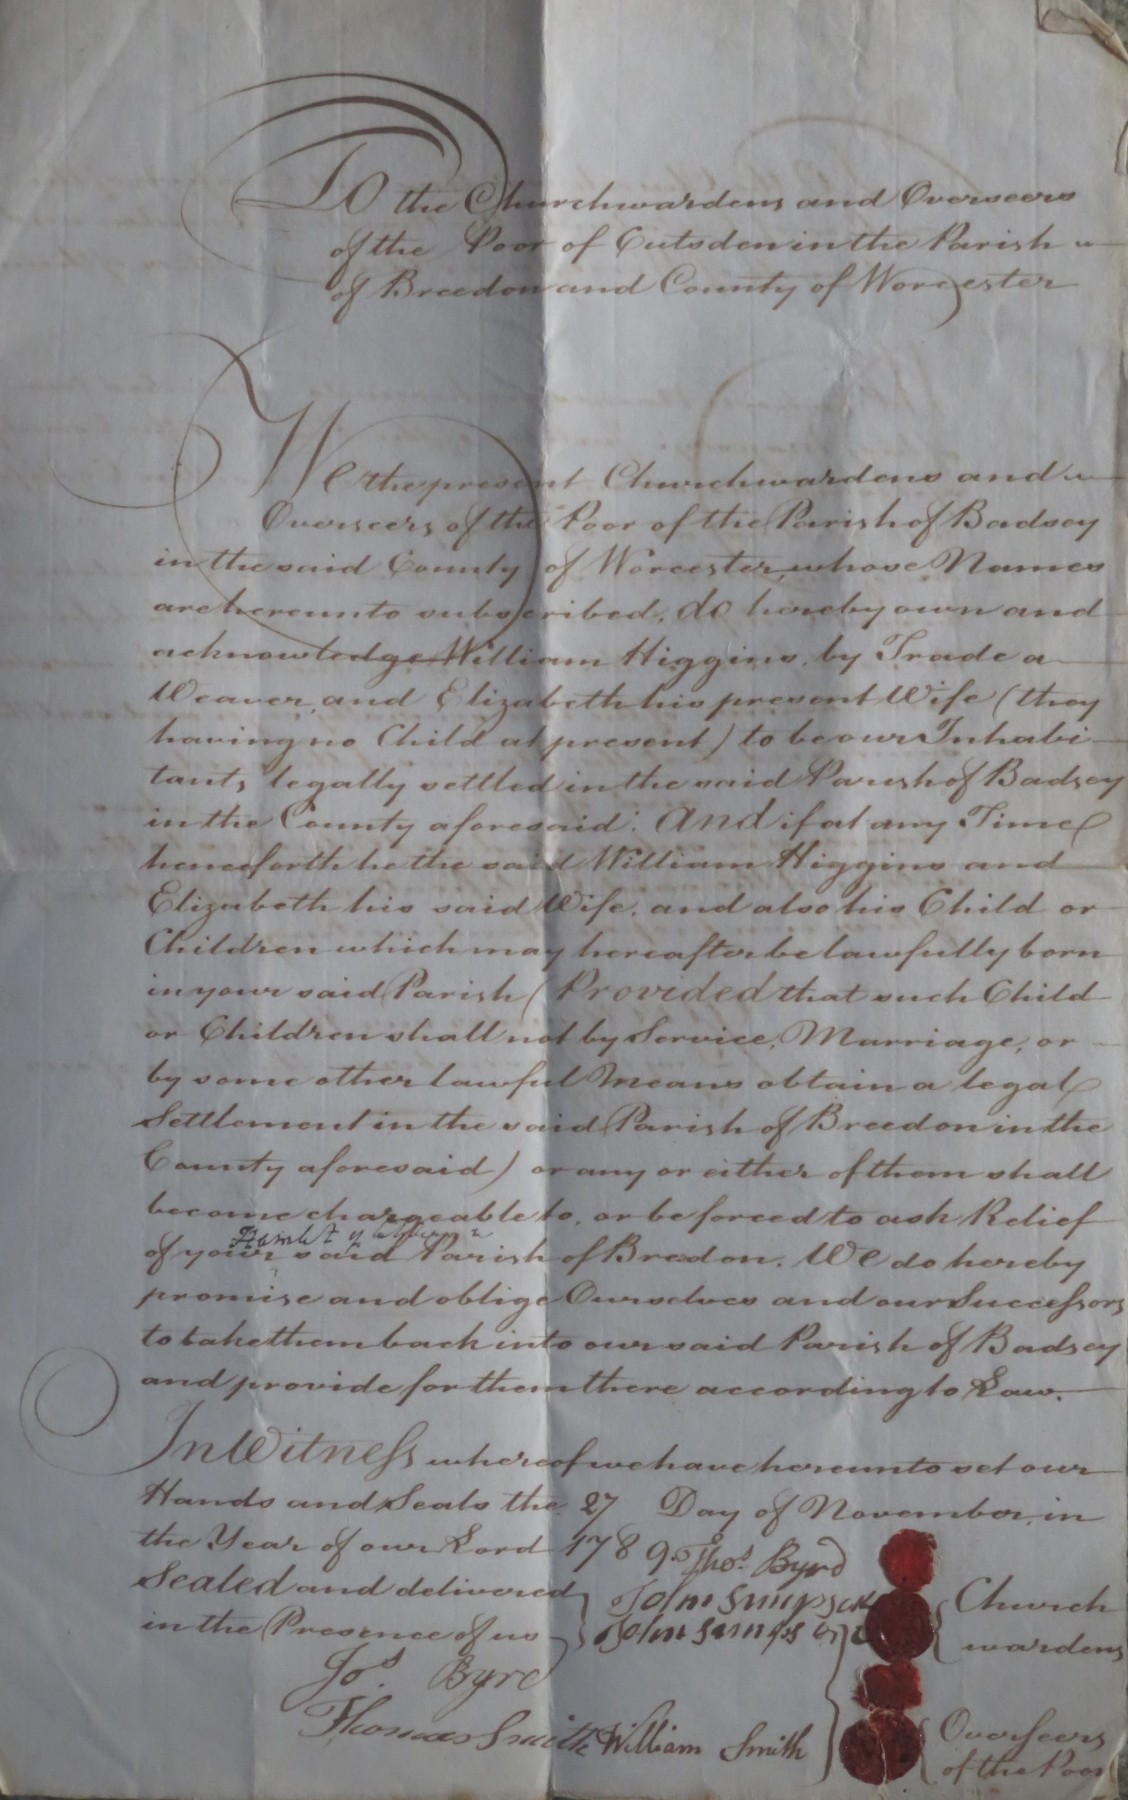 To the Churchwardens and Overseers
of the Poor of Cutsden in the Parish
of Breedon and County of Worcester
We the present Churchwardens and
Overseers of the Poor of the Parish of Badsey
in the said County of Worcester, whose Names
are hereunto subscribed, do hereby own and
acknowledge William Higgins, by Trade a
Weaver, and Elizabeth his present Wife (they
having no Child at present) to be our Inhabi
tants, legally settled in the said Parish of Badsey
in the County aforesaid: And if at any Time
henceforth he the said William Higgins and
Elizabeth his said Wife, and also his Child or
Children which may hereafter be lawfully born
in your said Parish (Provided that such Child
or Children shall not by Service, Marriage, or
by some other lawful Means obtain a legal
Settlement in the said Parish of Breedon in the
County aforesaid) or any or either of them shall
become chargeable to, or be forced to ask Relief
Hamlet
of your said Parish of Bredon. We do hereby
promise and oblige Ourselves and our Successors
to take them back into our said Parish of Badsey
and provide for them there according to Law.
In Witness whereof we have hereunto set our
Hands and Seals the 27 Day of November, in
the Year of our Lord 1789. Thos. Byrd
Sealed and delivered John Simpson
in the Presence of us John Simpson
Church
wardens
Jos. Byrd
Thomas Smith William Smith
Overseers
of the Poor